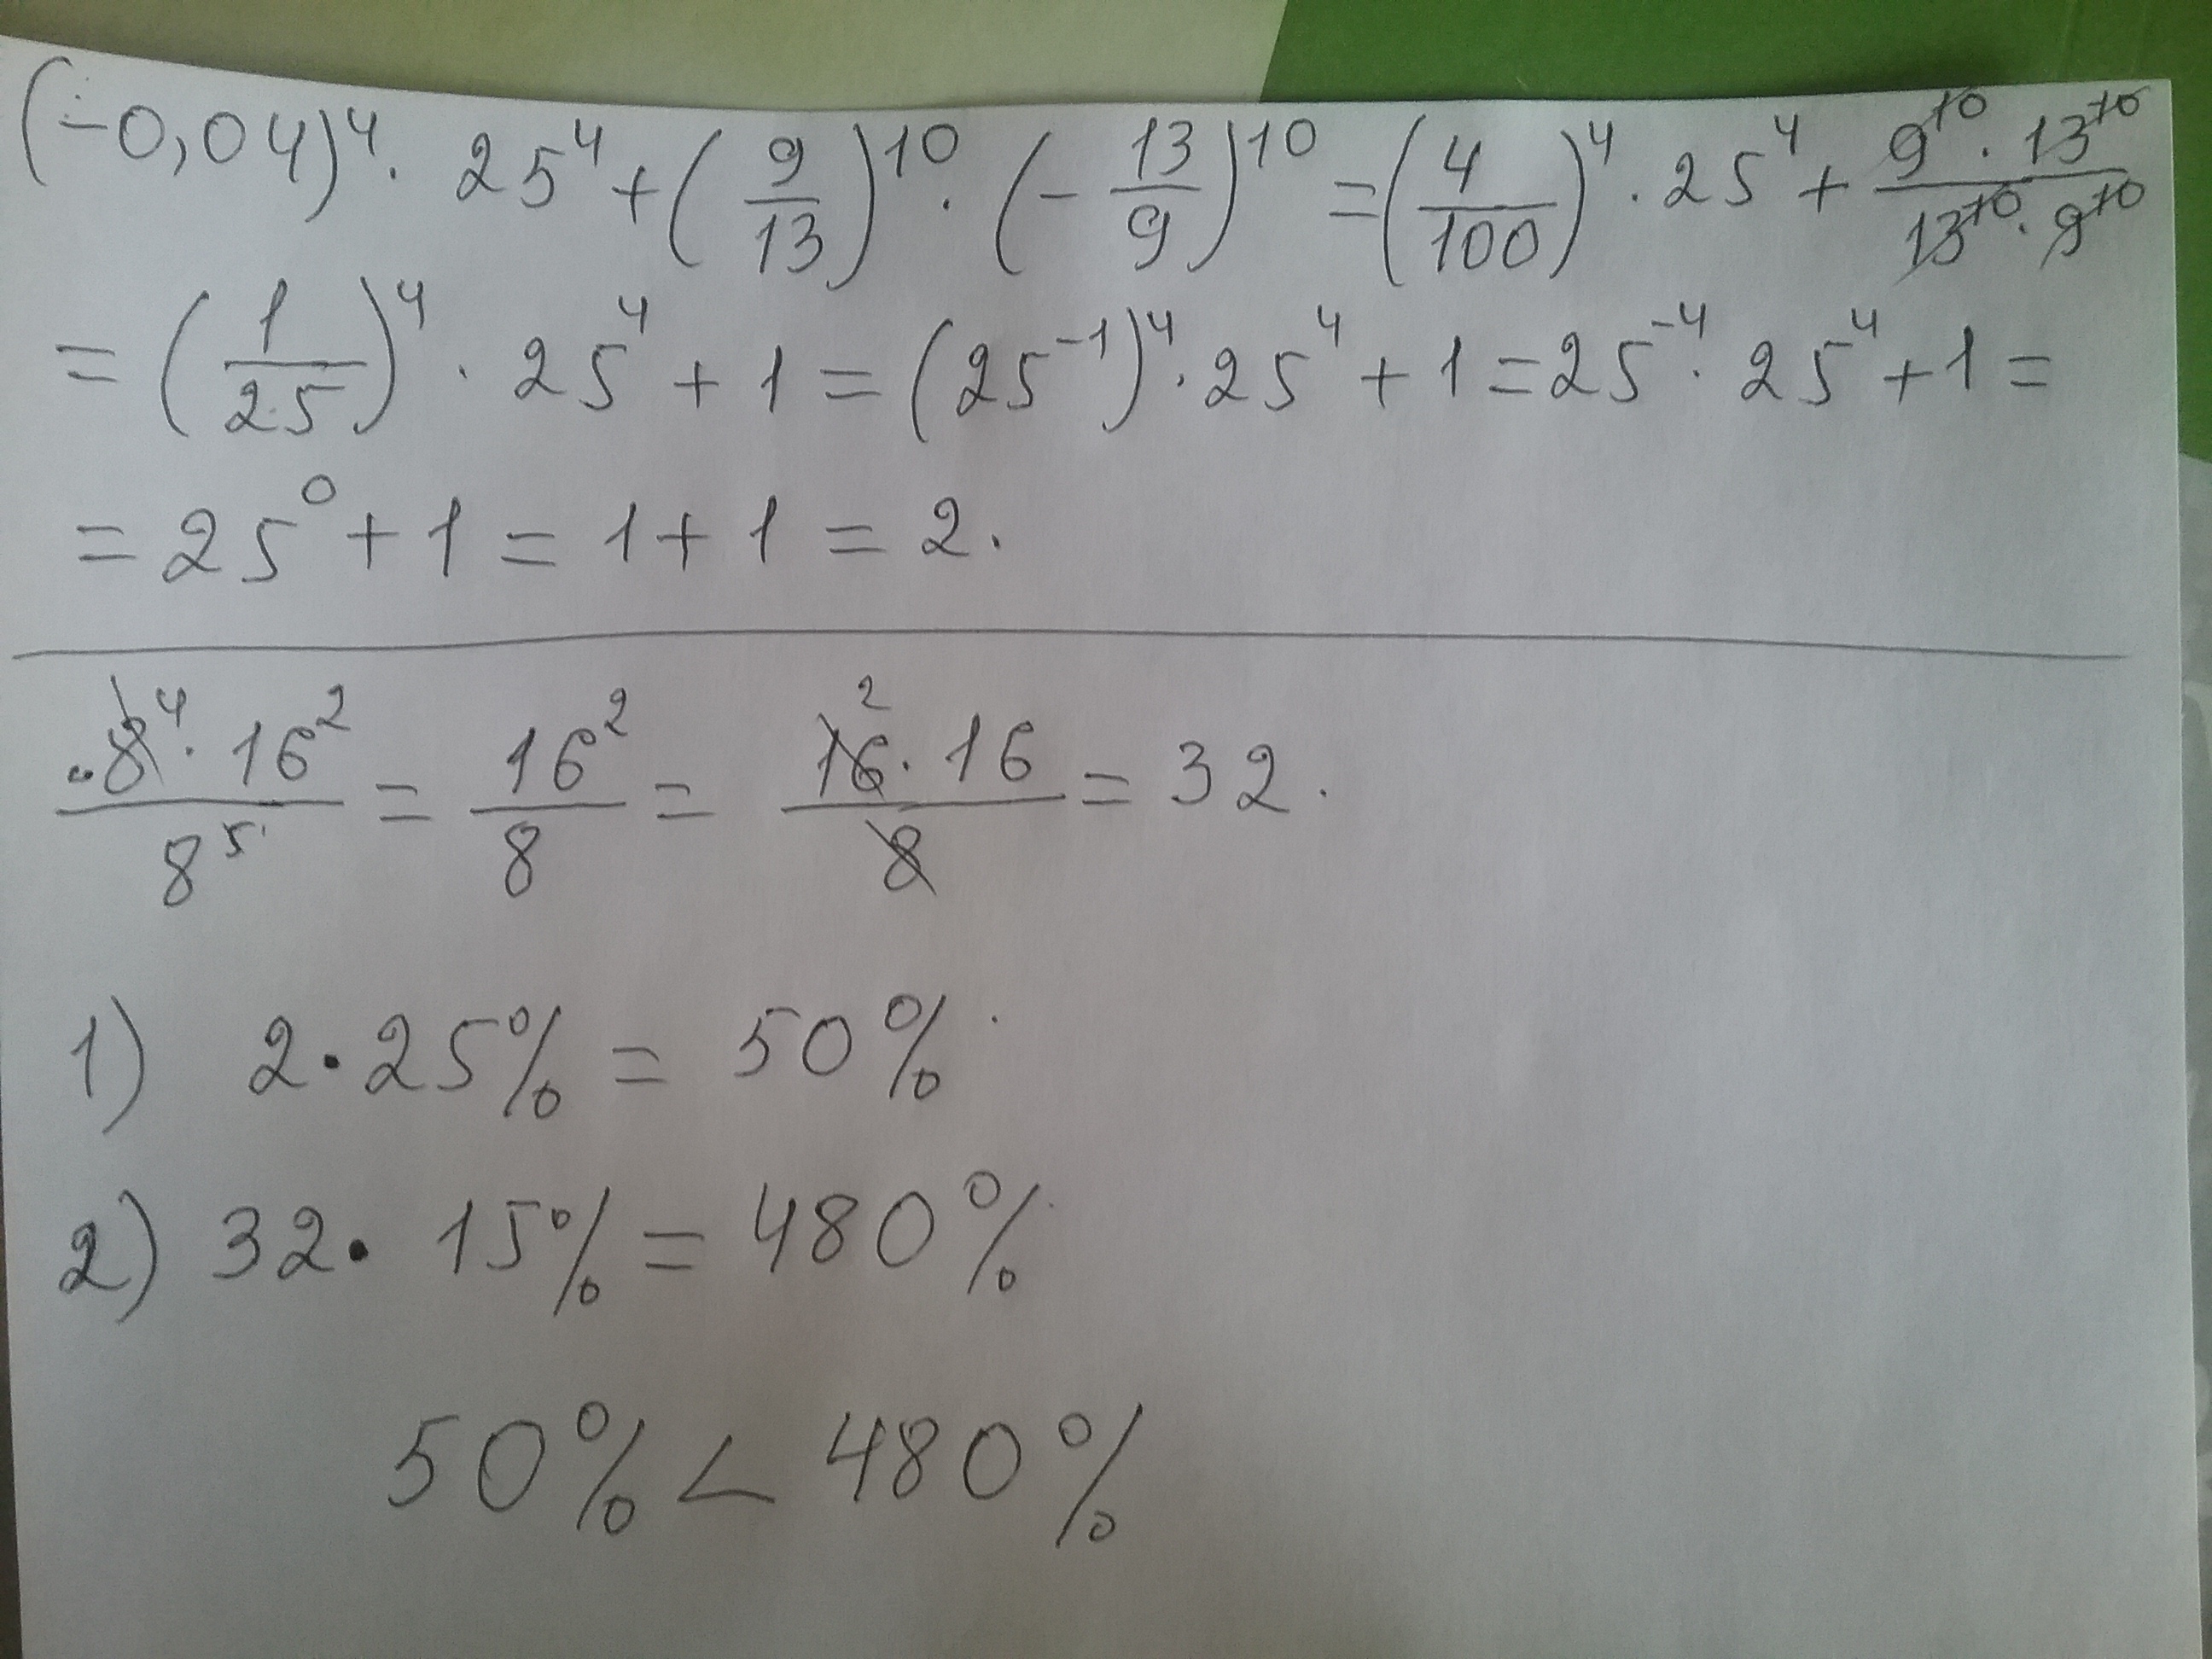 (-0,04)⁴ · 25⁴ + (9/13)¹⁰ · (-13/9)¹⁰ = (4/100)⁴ · 25⁴ + (9¹⁰ · 13¹⁰)/(13¹⁰ · 9¹⁰)
= (1/25)⁴ · 25⁴ + 1 = (25⁻¹)⁴ · 25⁴ + 1 = 25⁻⁴ · 25⁴ + 1 =
= 25⁰ + 1 = 1 + 1 = 2.
(8⁴ · 16²)/8⁵ = 16²/8 = (16² · 16)/8 = 32.
1) 2 · 25% = 50%
2) 32 · 15% = 480%
50% < 480%